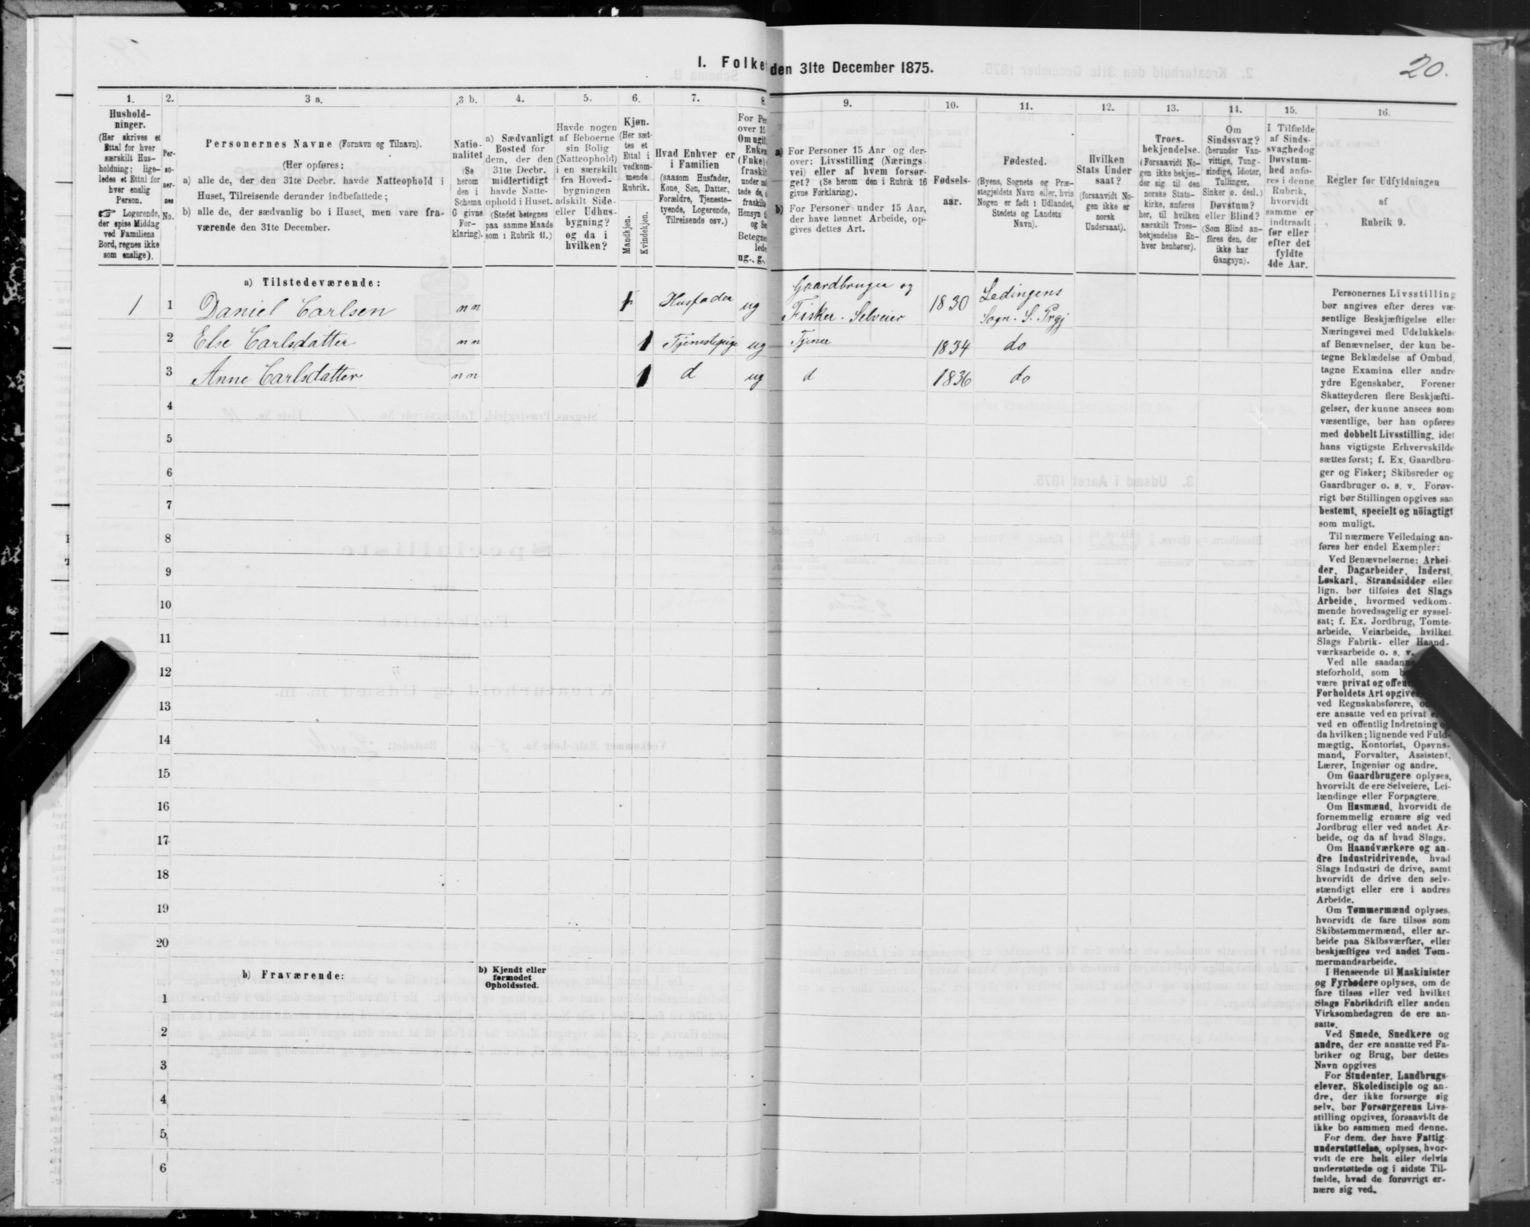 I. Folke
den 31te December 1875.
20.
1.
Hushold-
ninger.
(Her skrives et
Ettal for hver
særskilt Hus-
holdning; lige-
ledes et Ettal for
hver enslig
Person.
☞ Logerende,
der spise Middag
ved Familiens
Bord, regnes ikke
som enslige).
2.
Per-
so-
ner-
nes
No.
3 a.
Personernes Navne (Fornavn og Tilnavn).
(Her opføres:
a) alle de, der den 31te Decbr. havde Natteophold i
Huset, Tilreisende derunder indbefattede;
b) alle de, der sædvanlig bo i Huset, men vare fra-
værende den 31te December.
3 b.
Natio-
nalitet
(Se
herom
den i
Schema
G givne
For-
klaring).
4.
a) Sædvanligt
Bosted for
dem, der den
31te Decbr.
midlertidigt
havde Natte-
ophold i Huset.
(Stedet betegnes
paa samme Maade
som i Rubrik 11.)
5.
Havde nogen
af Beboerne
sin Bolig
(Natteophold)
i en særskilt
fra Hoved-
bygningen
adskilt Side-
eller Udhus-
bygning?
og da i
hvilken?
6.
Kjøn.
(Her sæt-
tes et
Ettal i
vedkom-
mende
Rubrik.
Mandkjøn.
Kvindekjøn.
7.
Hvad Enhver er
i Familien
(saasom Husfader,
Kone, Søn, Datter,
Forældre, Tjeneste-
tyende, Logerende,
Tilreisende osv.)
8.
For Per
over 15
Om ugif
Enkem
(Fuke)
fraskilt
under ne
tede de, d
fraskilt
Hensyn t
og Se
Betegne
lede
ug., g.,
9.
a) For Personer 15 Aar og der-
over: Livsstilling (Nærings-
vei) eller af hvem forsør-
get? (Se herom den i Rubrik 16
givne Forklaring).
b) For Personer under 15 Aar,
der have lønnet Arbeide, op-
gives dettes Art.
10.
Fødsels-
aar.
11.
Fødested.
(Byens, Sognets og Præ-
stegjeldets Navn eller, hvis
Nogen er født i Udlandet,
Stedets og Landets
Navn).
12.
Hvilken
Stats Under
saat?
(forsaavidt No-
gen ikke er
norsk
Undersaat).
13.
Troes-
bekjendelse.
(Forsaavidt No-
gen ikke bekjen-
der sig til den
norske Stats-
kirke, anføres
her, til hvilken
særskilt Troes-
bekjendelse En-
hver henhører).
14.
Om
Sindssvag?
(herunder Van-
vittige, Tung-
sindige, Idioter,
Tullinger,
Sinker o. desl.)
Døvstum?
eller Blind?
(Som Blind an-
føres den, der
ikke har
Gangsyn).
15.
I Tilfælde
af Sinds-
svaghed og
Døvstum-
hed anfø-
res i denne
Rubrik,
hvorvidt
samme er
indtraadt
før eller
efter det
fyldte
4de Aar.
16.
Regler før Udfyldningen
af
Rubrik 9.
a) Tilstedeværende:
1 1 Daniel Carlsen nn 1 Husfader ug Gaardbruger og
Fisker. Selveier 1830 Lødingens
Sogn. S. Prgj
2 Else Carlsdatter nn 1 Tjenestepige ug Tjener 1834 do
3 Anne Carlsdatter nn 1 d ug d 1836 do
4
5
6
7
8
9
10
11
12
13
14
15
16
17
18
19
20
b) Fraværende:
b) Kjendt eller
formodet
Opholdssted.
1
2
3
4
5
6
Personernes Livsstilling
bør angives efter deres væ-
sentlige Beskjæftigelse eller
Næringsvei med Udelukkels
af Benævnelser, der kun be-
tegne Beklædelse af Ombud,
tagne Examina eller andre
ydre Egenskaber. Forener
Skatteyderen flere Beskjæfti-
gelser, der kunne ansees som
væsentlige, bør han opføres
med dobbelt Livsstilling, idet
hans vigtigste Erhvervskilde
sættes først; f. Ex. Gaardbru-
ger og Fisker; Skibsreder og
Gaardbruger o. s. v. Forøv-
rigt bør Stillingen opgives saa
bestemt, specielt og nöiagtigt
som muligt.
Til nærmere Veiledning an-
føres her endel Exempler:
Ved Benævnelserne: Arbei-
der, Dagarbeider, Inderst,
Løskarl, Strandsidder eller
lign. bør tilføies det Slags
Arbeide, hvormed vedkom-
mende hovedsagelig er syssel-
sat; f. Ex. Jordbrug, Tomte-
arbeide, Veiarbeide, hvilket
Slags Fabrik- eller Haand-
værksarbeide o. s. v.
Ved alle saadan
steforhold, som
være privat og offen
Forholdets Art opgive
ved Regnskabsførere,
ere ansatte ved en privat
ved en offentlig Indretning
da hvilken; lignende ved Fuld-
mægtig, Kontorist, Opsyns-
mand, Forvalter, Assistent,
Lærer, Ingeniør og andre.
Om Gaardbrugere oplyses,
hvorvidt de ere Selveiere, Lei-
lændinge eller Forpagtere.
Om Husmænd, hvorvidt de
fornemmelig ernære sig ved
Jordbrug eller ved andet Ar-
beide, og da af hvad Slags.
Om Haandværkere og an-
dre Industridrivende, hvad
Slags Industri de drive, samt
hvorvidt de drive den selv-
stændigt eller ere i andres
Arbeide.
Om Tømmermænd oplyses,
hvorvidt de fare tilsøs som
Skibstømmermænd, eller ar-
beide paa Skibsværfter, eller
beskjæftiges ved andet Tøm-
mermandsarbeide.
I Henseende til Maskinister
og Fyrbødere oplyses, om de
fare tilsøs eller ved hvilket
Slags Fabrikdrift eller anden
Virksomhedsgren de ere an-
satte.
Ved Smede, Snedkere og
andre, der ere ansatte ved Fa-
briker og Brug, bør dettes
Navn opgives
For Studenter, Landbrugs-
elever, Skoledisciple og an-
dre, der ikke forsørge sig
selv, bør Forsørgerens Livs-
stilling opgives, forsaavidt de
ikke bo sammen med denne.
For dem, der have Fattig
understøttelse, oplyses, hvor-
vidt de ere helt eller delvis
understøttede og i sidste Til-
fælde, hvad de forøvrigt er-
nære sig ved.